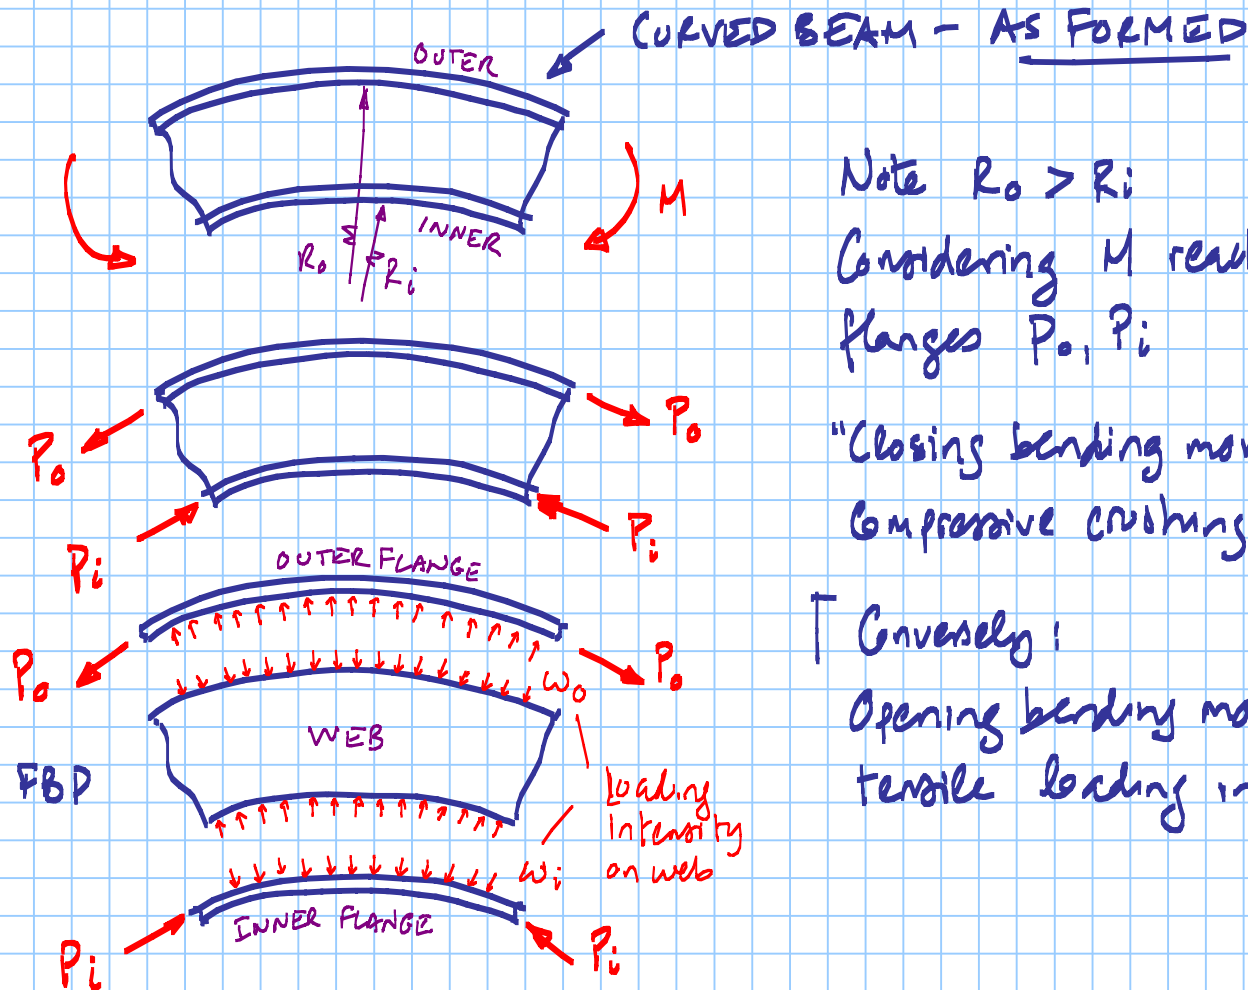 CURVED BEAM - AS FORMED
OUTER
INNER
Ro
Ri
M
Note Ro > Ri
Considering M reac
flanges Po, Pi
Po
Po
Pi
Pi
"Closing bending mo
Compressive crushing
OUTER FLANGE
Po
Po
wo
WEB
FBD
Loading
intensity
on web
wi
INNER FLANGE
Pi
Pi
Conversely:
Opening bending mo
tensile loading in